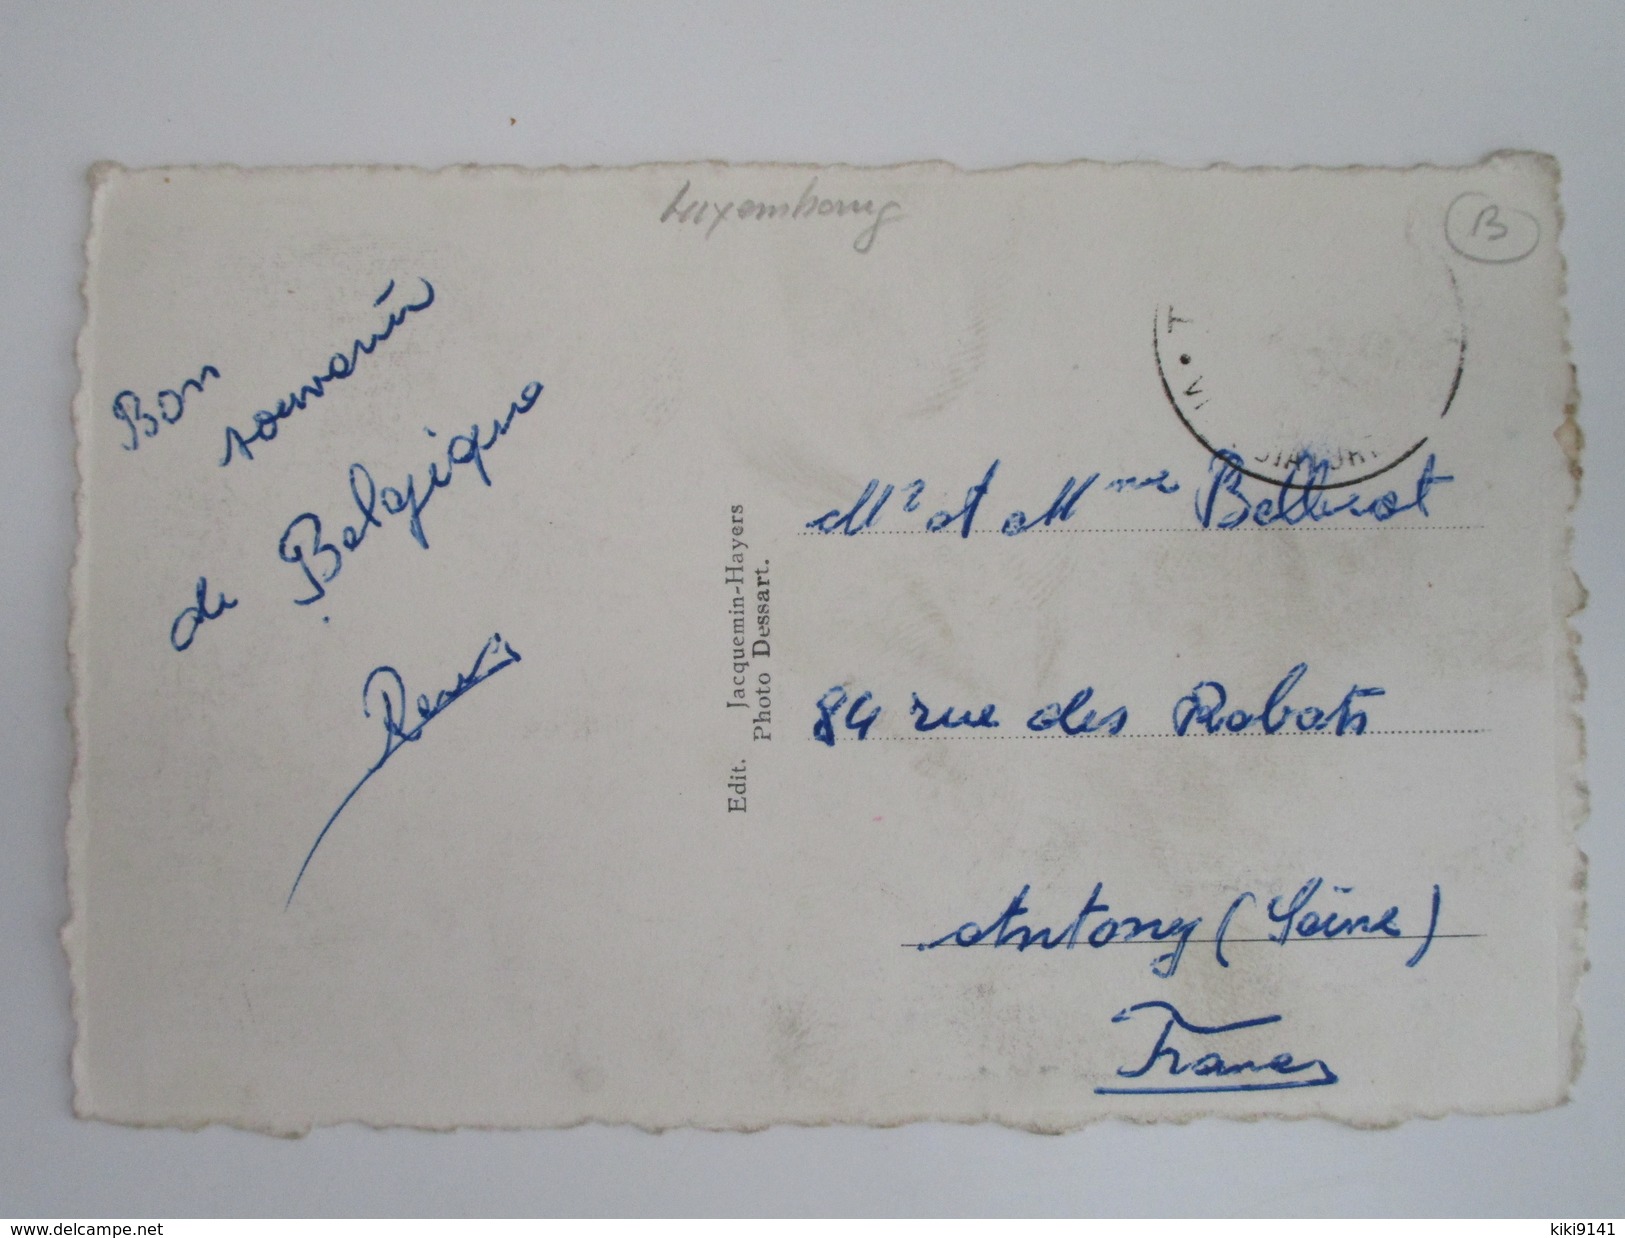 Luxembourg
B
Bon
souvenir
de Belgique
Edit. Jacquemin-Hayers
Photo Dessart.
Mr et Mme
84 rue des Rabats
Antony (Seine)
France
www.delcampe.net
kiki9141